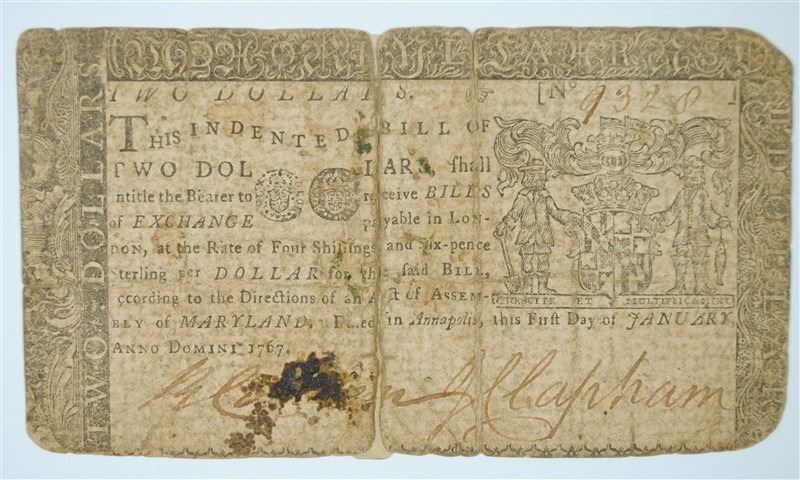 TWO DOLLARS. [No 9328]
THIS INDENTED BILL OF
TWO DOLLARS, shall
entitle the Bearer to receive BILLS
of EXCHANGE payable in LON-
DON, at the Rate of Four Shillings and Six-pence
Sterling per DOLLAR for the said BILL,
according to the Directions of an Act of ASSEM-
BLY of MARYLAND, Dated in Annapolis, this First Day of JANUARY,
ANNO DOMINI 1767.
CRESCITE ET MULTIPLICAMINI
J Clapham
TWO DOLLARS